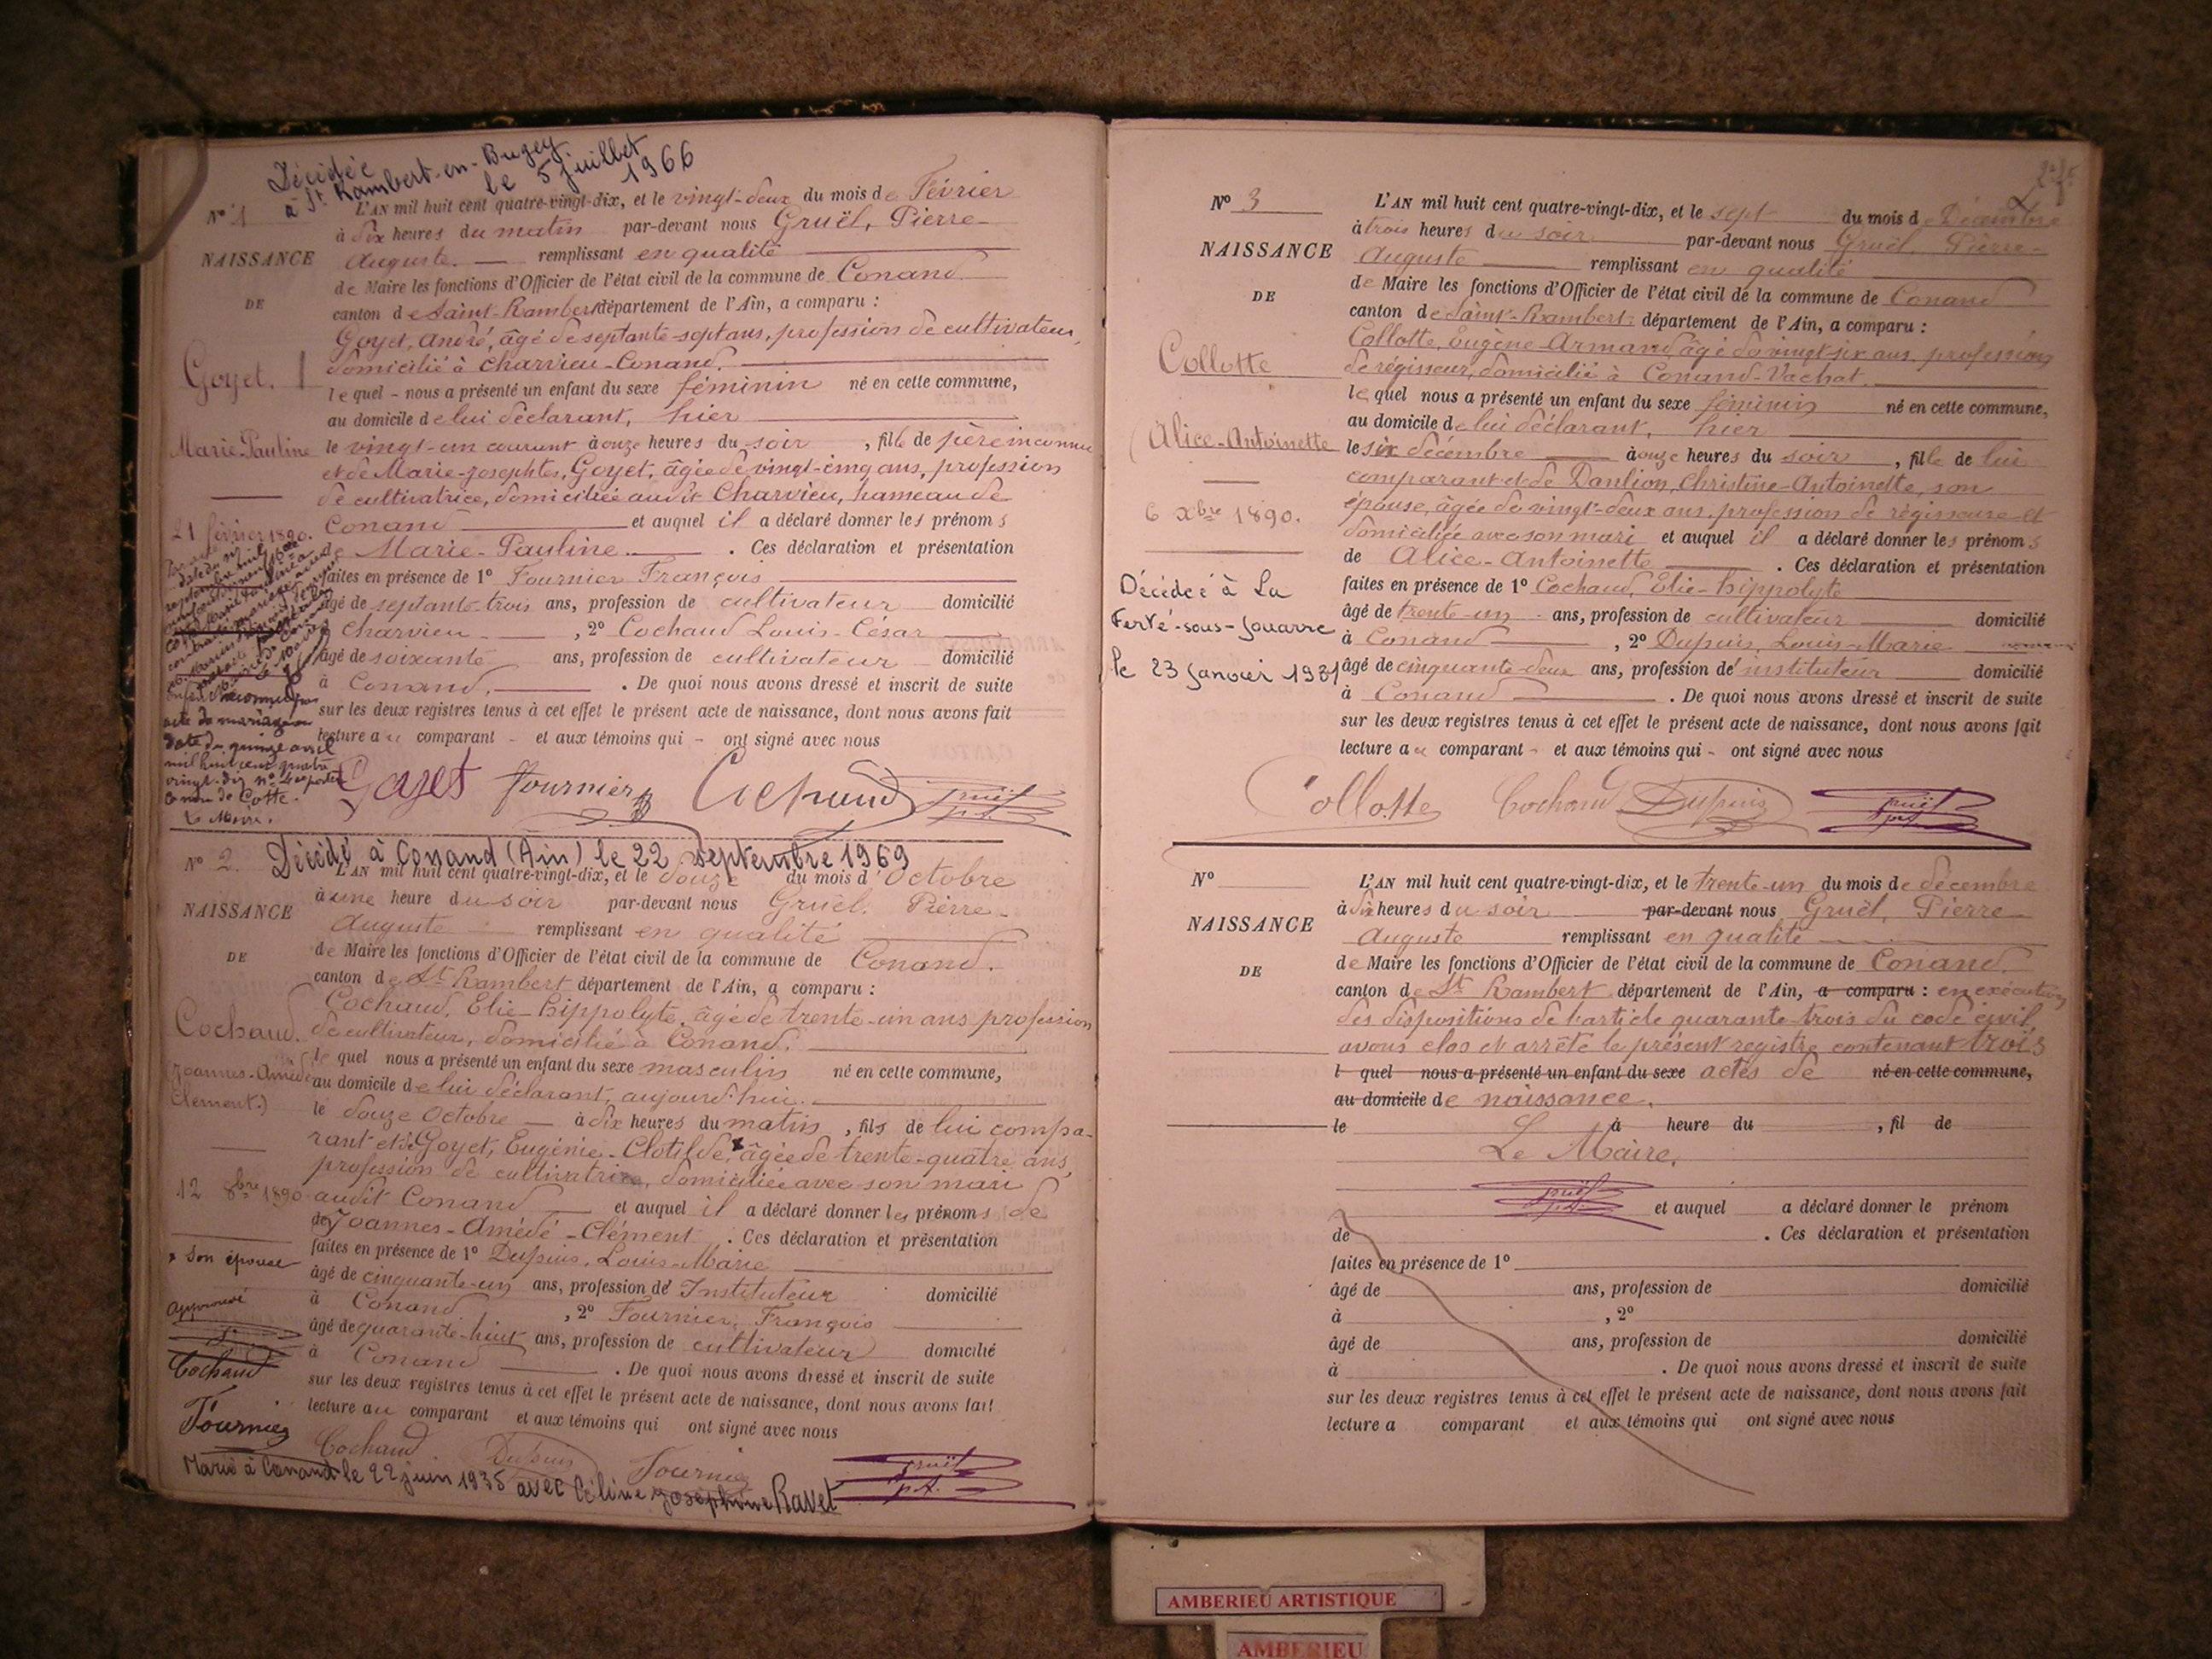 Décédée
à St Rambert-en-Bugey
le 5 juillet
1966
N° 1
L'AN mil huit cent quatre-vingt-dix, et le vingt-deux du mois de Février
à dix heures du matin par-devant nous Gruël, Pierre-
NAISSANCE
Auguste. remplissant en qualité
de Maire les fonctions d'Officier de l'état civil de la commune de Conand
DE
canton de Saint-Rambert département de l'Ain, a comparu :
Goyet, André, âgé de septante-sept ans, profession de cultivateur,
domicilié à Charvieu-Conand.
Goyet.
lequel - nous a présenté un enfant du sexe féminin né en cette commune,
au domicile de lui déclarant, hier
Marie-Pauline
le vingt-un courant à onze heures du soir, fille de père inconnu
et de Marie-Josephte, Goyet, âgée de vingt-cinq ans, profession
de cultivatrice, domiciliée audit Charvieu, hameau de
21 février 1890.
Conand et auquel il a déclaré donner les prénoms
de Marie-Pauline. Ces déclaration et présentation
faites en présence de 1° Fournier François
âgé de septante-trois ans, profession de cultivateur domicilié
à Charvieu, 2° Cochaud Louis-César
âgé de soixante ans, profession de cultivateur domicilié
à Conand. De quoi nous avons dressé et inscrit de suite
sur les deux registres tenus à cet effet le présent acte de naissance, dont nous avons fait
lecture au comparant - et aux témoins qui - ont signé avec nous
acte de mariage
date du quinze avril
mil huit cent quatre
vingt-dix n°
Le Maire.
Goyet Fournier Cochaud Gruël
N° 2.
Décédé à Conand (Ain) le 22 septembre 1969
L'AN mil huit cent quatre-vingt-dix, et le douze du mois d'Octobre
à une heure du soir par-devant nous Gruël, Pierre-
NAISSANCE
Auguste remplissant en qualité
de Maire les fonctions d'Officier de l'état civil de la commune de Conand.
DE
canton de St Rambert département de l'Ain, a comparu :
Cochaud, Elie-Hippolyte, âgé de trente-un ans profession
Cochaud.
de cultivateur, domicilié à Conand.
lequel nous a présenté un enfant du sexe masculin né en cette commune,
Joannes-Amédé
au domicile de lui déclarant, aujourd'hui.
Clément.)
le douze Octobre à dix heures du matin, fils de lui compa-
rant et de Goyet, Eugénie-Clotilde, x âgée de trente-quatre ans,
profession de cultivatrice, domiciliée avec son mari
12 8bre 1890
audit Conand et auquel il a déclaré donner les prénoms de
de Joannes-Amédé-Clément. Ces déclaration et présentation
faites en présence de 1° Dupuis, Louis-Marie
x son épouse
âgé de cinquante-un ans, profession d'Instituteur domicilié
à Conand, 2° Fournier, François
approuvé
âgé de quarante-huit ans, profession de cultivateur domicilié
à Conand. De quoi nous avons dressé et inscrit de suite
Cochaud
sur les deux registres tenus à cet effet le présent acte de naissance, dont nous avons fait
lecture au comparant et aux témoins qui ont signé avec nous
Fournier
Cochaud Dupuis Fournier Gruël
Marié à Conand le 22 juin 1935 avec Céline Joséphine Ravet
N° 3
L'AN mil huit cent quatre-vingt-dix, et le sept du mois de Décembre
à trois heures du soir par-devant nous Gruël, Pierre-
NAISSANCE
Auguste remplissant en qualité
de Maire les fonctions d'Officier de l'état civil de la commune de Conand
DE
canton de Saint-Rambert département de l'Ain, a comparu :
Collotte, Eugène-Armand, âgé de vingt-six ans, profession
Collotte
de régisseur, domicilié à Conand-Vachat.
lequel nous a présenté un enfant du sexe féminin né en cette commune,
au domicile de lui déclarant, hier
Alice-Antoinette
le six décembre à onze heures du soir, fille de lui
comparant et de Danlion, Christine-Antoinette, son
épouse, âgée de vingt-deux ans, profession de régisseure et
6 Xbre 1890.
domiciliée avec son mari et auquel il a déclaré donner les prénoms
de Alice-Antoinette. Ces déclaration et présentation
faites en présence de 1° Cochaud, Elie-Hippolyte
Décédée à La
âgé de trente-un ans, profession de cultivateur domicilié
Ferté-sous-Jouarre
à Conand, 2° Dupuis, Louis-Marie
le 23 janvier 1931
âgé de cinquante-deux ans, profession d'instituteur domicilié
à Conand. De quoi nous avons dressé et inscrit de suite
sur les deux registres tenus à cet effet le présent acte de naissance, dont nous avons fait
lecture au comparant - et aux témoins qui - ont signé avec nous
Collotte Cochaud Dupuis Gruël
N°
L'AN mil huit cent quatre-vingt-dix, et le trente-un du mois de décembre
à dix heures du soir par-devant nous Gruël, Pierre
NAISSANCE
Auguste remplissant en qualité
de Maire les fonctions d'Officier de l'état civil de la commune de Conand.
DE
canton de St Rambert département de l'Ain, a comparu : en exécution
des dispositions de l'article quarante-trois du code civil,
avons clos et arrêté le présent registre contenant trois
l quel nous a présenté un enfant du sexe actes de né en cette commune,
au domicile de naissance.
le à heure du , fil de
Le Maire,
Gruël
et auquel a déclaré donner le prénom
de . Ces déclaration et présentation
faites en présence de 1°
âgé de ans, profession de domicilié
à , 2°
âgé de ans, profession de domicilié
à . De quoi nous avons dressé et inscrit de suite
sur les deux registres tenus à cet effet le présent acte de naissance, dont nous avons fait
lecture a comparant et aux témoins qui ont signé avec nous
AMBERIEU ARTISTIQUE
AMBERIEU